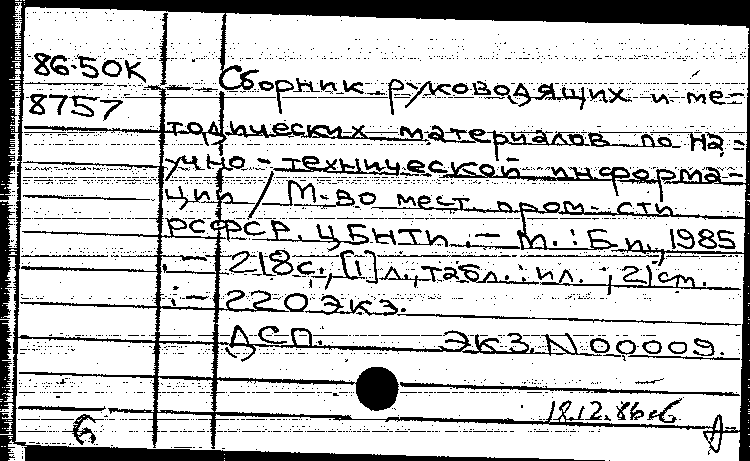 86-50К
8757
Сборник руководящих и ме-
тодических материалов по на-
учно-технической информа-
ции / М-во мест. пром-сти
РСФСР. ЦБНТИ. – М. : Б.и., 1985
. – 218 с., [1] л., табл. : ил. ; 21 см.
. – 220 экз.
ДСП. Экз. N 00009.
18.12.86
б